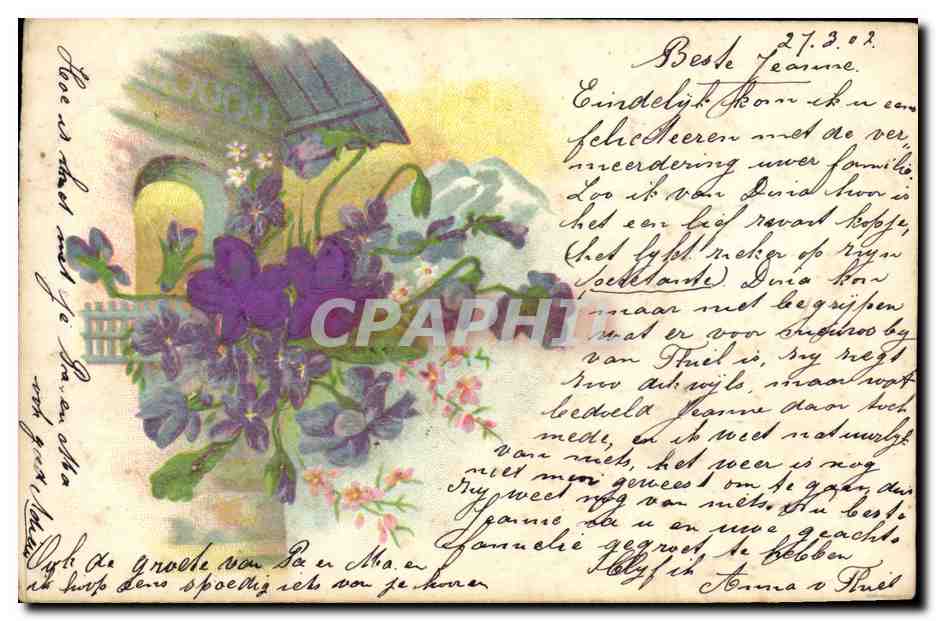 27.3.02.
Beste Jeanne.
Eindelijk kom ik u een
feliciteeren met de ver„
meerdering uwer familie.
Zoo ik van Dina hoor is
het een lief zwart kopje,
het lijkt zeker op zijn
Dina kon
maar niet begrijpen
wat er voor nieuws by
van Thiel is, zij zegt
zoo dikwijls, maar wat
bedoeld Jeanne daar toch
mede, en ik weet natuurlijk
van niets, het weer is nog
niet mooi geweest om te gaan dus
zij weet nog van niets. Nu beste
Jeanne na u en uwe geachte
familie gegroet te hebben
Blyf ik
Anna v Thiel
Ook de groete van Pa en Ma en
ik hoop eens spoedig iets van je hooren
Hoe is het met je Pa en Ma
ook goed
CPAPHIL